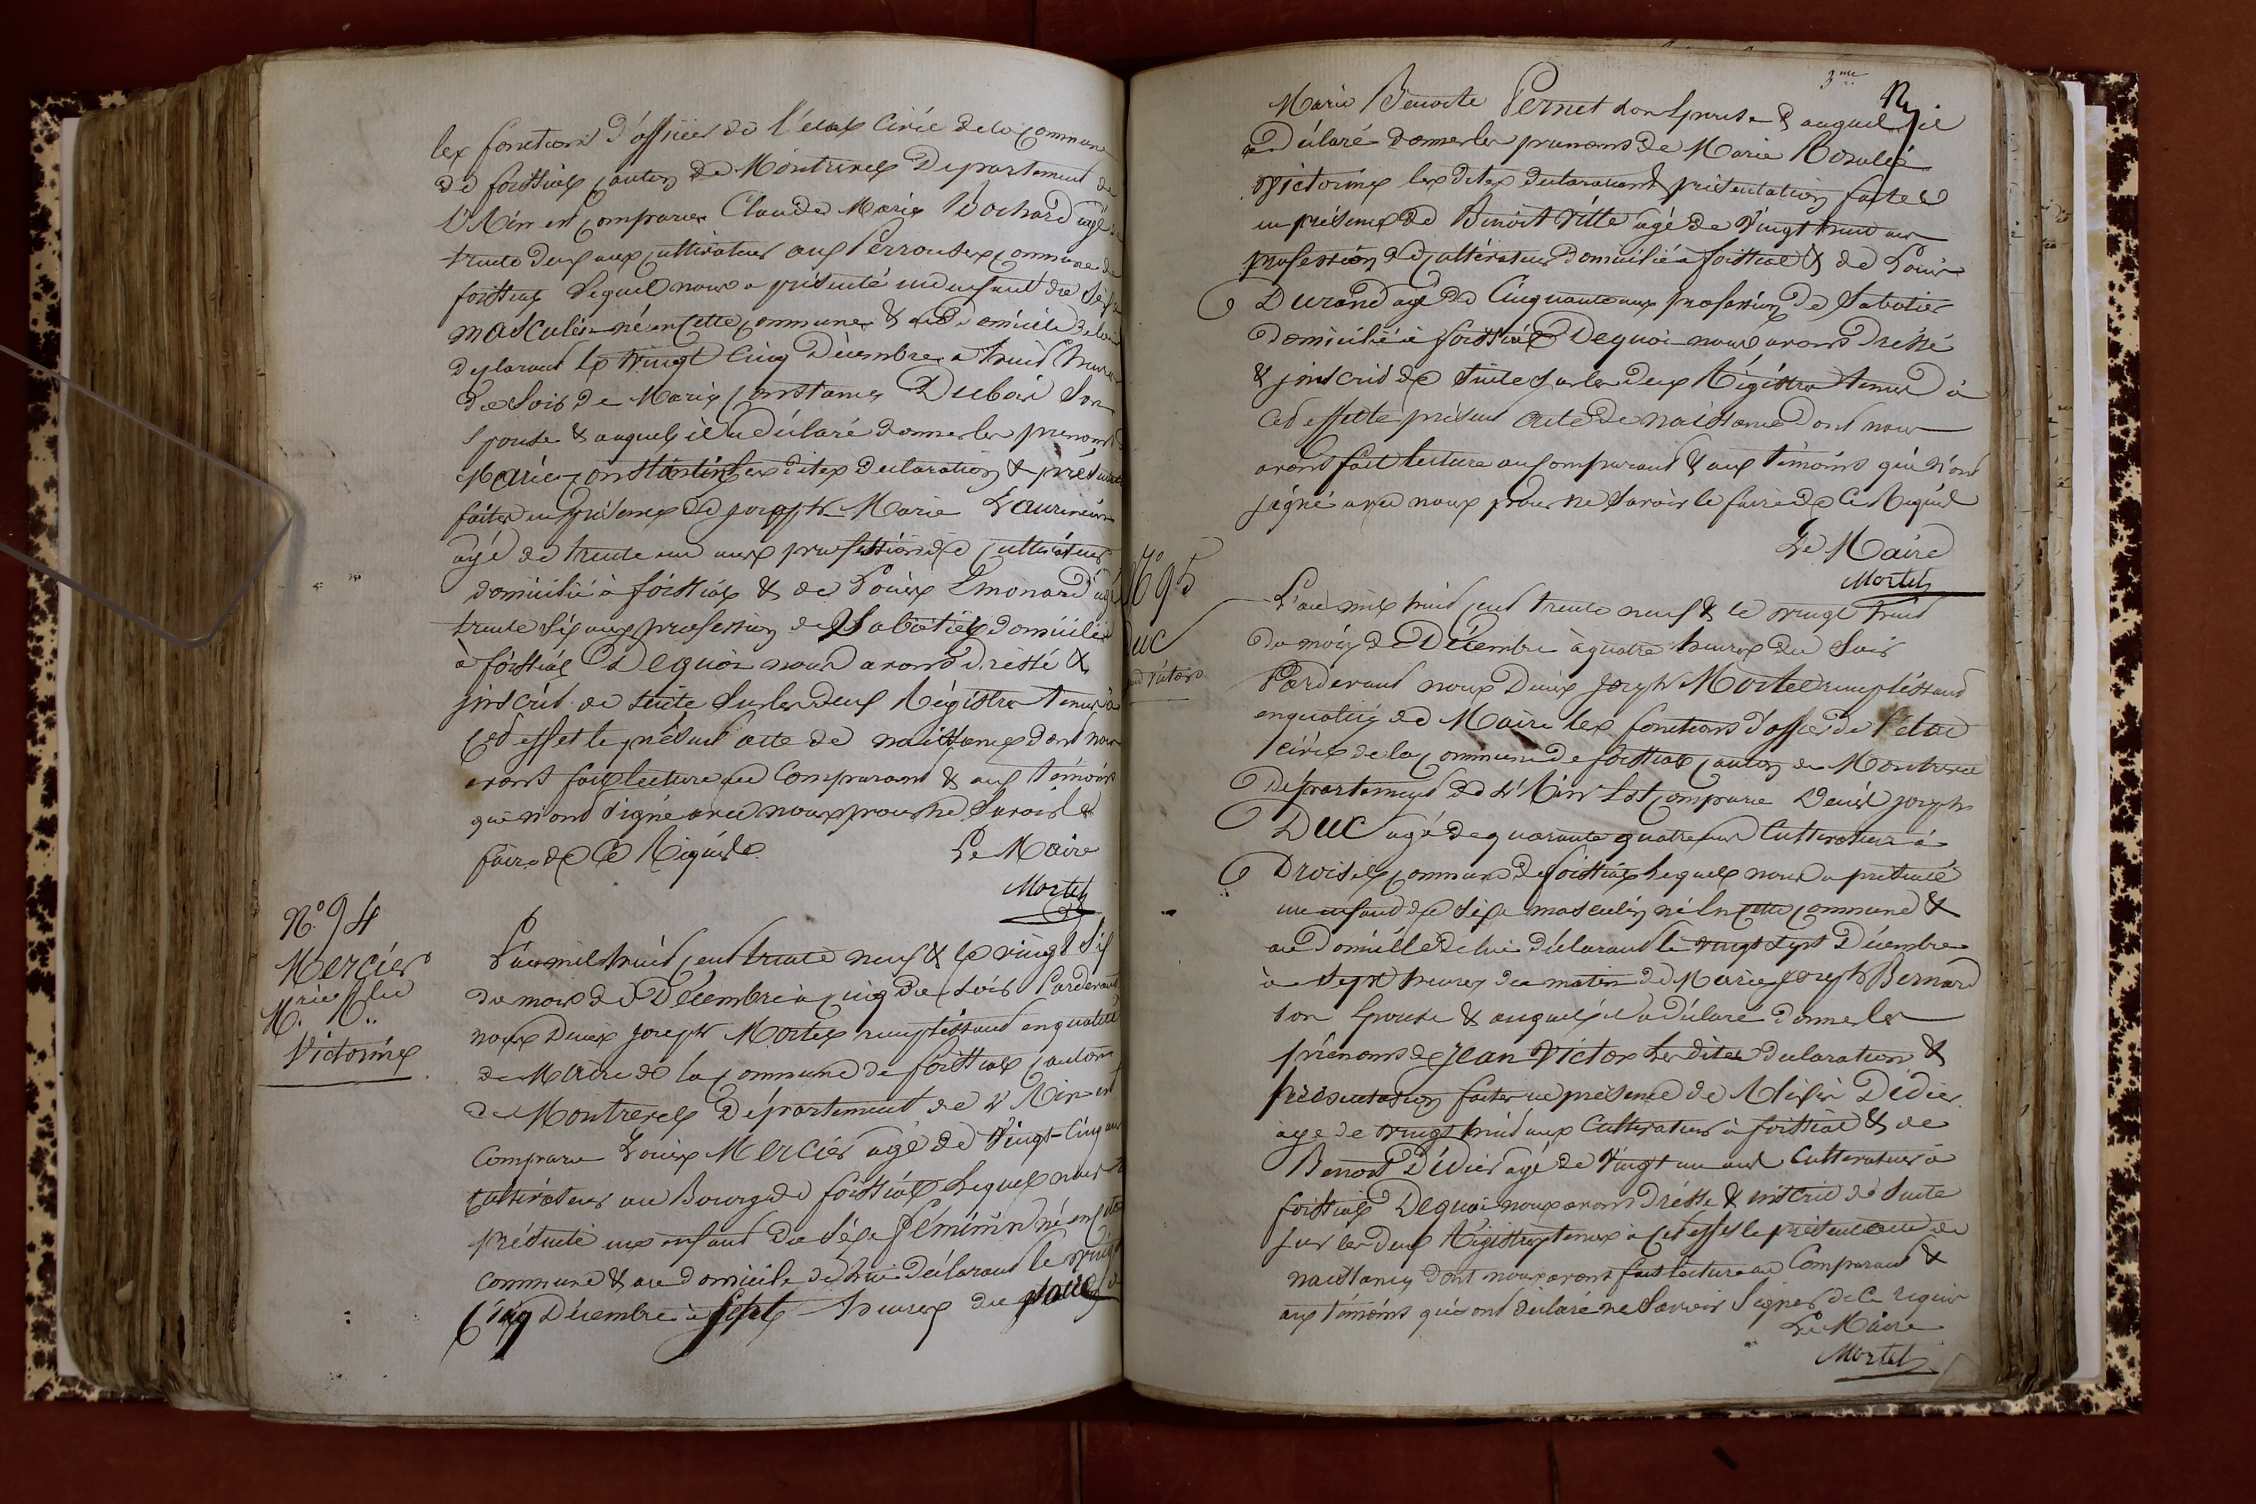 les fonctions d'officier de l'état Civil de la Commune
de foissiat canton de Montrevel Departement de
l'Ain est Comparu Claude Marie Bochard agé de
trente deux ans cultivateur aux Perrouses commune de
foissiat Lequel nous a présenté un enfant du Séxe
masculin né en Cette commune & au domicile de lui
déclarant le vingt Cinq Décembre a huit heures
du Soir de Marie Constance Dubois Son
Epouse & auquel il a déclaré donner les prenoms de
Marie Constantin Les dites declaration & présentation
faites en présence de joseph Marie Laurencin
agé de trente un ans profession de cultivateur
domicilié à foissiat & de Louis Emonard agé
trente Six ans profession de Sabotier domicilié
à foissiat De quoi nous avons dressé &
inscrit de suite Sur les deux Régistres tenus à
Cet effet le présent acte de naissance dont nous
avons fait lecture au Comparant & aux témoins
qui n'ont Signé avec nous pour ne Savoir le
faire de Ce Réquis
Le Maire
Mortel
N.° 94
Mercier
M.rie R.lie
Victorine
L'an mil huit cent trente neuf & le vingt Six
du mois de Décembre à cinq du Soir Pardevant
nous Denis joseph Mortel remplissant en qualité
de Maire de la commune de foissiat canton
de Montrevel Département de l'Ain est
Comparu Louis Mercier agé de Vingt-Cinq ans
cultivateur au Bourg de foissiat Lequel nous a
présenté un enfant du Séxe féminin né en cette
commune & au domicile de lui déclarant le vingt
Cinq Décembre à Sept heures du soir de
3.me
Marie Benoite Pernet son Epouse & auquel il
a Déclaré donner les prenoms de Marie Rosalie
Victorine les dites declaration & présentation faites
en présence de Benoit Ville agé de Vingt huit ans
profession de cultivateur domicilié à foissiat & de Louis
Durand agé de Cinquante ans profession de Sabotier
domicilié à foissiat De quoi nous avons dressé
& inscrit de Suite Sur les deux Régistres tenus à
Cet effet le présent acte de naissance dont nous
avons fait lecture au Comparant & aux témoins qui n'ont
signé avec nous pour ne Savoir le faire de Ce Réquis
Le Maire
Mortel
N.° 95
Duc
Jean Victor
L'an mil huit cent trente neuf & le vingt huit
du mois de Décembre à quatre heures du Soir
Pardevant nous Denis Joseph Mortel remplissant
en qualité de Maire les fonctions d'offier de l'état
civil de la commune de foissiat canton de Montrevel
Département de l'Ain Est comparu Denis joseph
Duc agé de quarante quatre ans Cultivateur à
Droisel commune de foissiat Lequel nous a présenté
un enfant de Séxe masculin né En Cette commune &
au Domicile de lui déclarant le vingt Sept Décembre
à Sept heures du matin de Marie Joseph Bernard
Son Epouse & auquel il a déclaré donner les
prénoms de Jean Victor Les dites declaration &
présentation faites en présence de Didier
age de vingt huit ans Cultivateur à foissiat & de
Benoit Didier agé de Vingt un ans Cultivateur à
foissiat De quoi nous avons dréssé & inscrit de Suite
sur les deux Régistres tenus à cet effet le présent acte de
naissance dont nous avons fait lecture au Comparant &
aux témoins qui ont déclaré ne Savoir Signer de Ce requis
Le Maire
Mortel